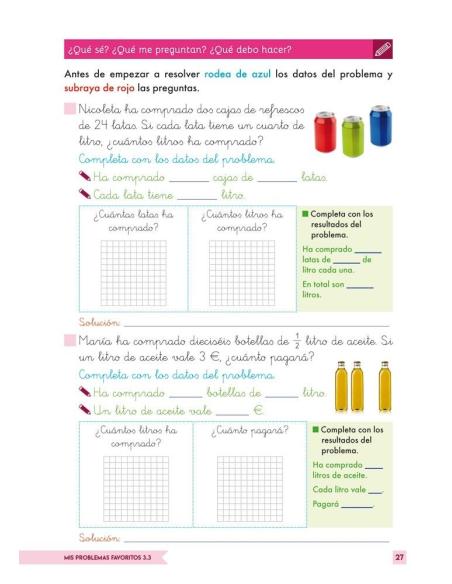 ¿Qué sé? ¿Qué me preguntan? ¿Qué debo hacer?
Antes de empezar a resolver rodea de azul los datos del problema y
subraya de rojo las preguntas.
Nicoleta ha comprado dos cajas de refrescos
de 24 latas. Si cada lata tiene un cuarto de
litro, ¿cuántos litros ha comprado?
Completa con los datos del problema.
Ha comprado ______ cajas de ______ latas.
Cada lata tiene ______ litro.
¿Cuántas latas ha
comprado?
¿Cuántos litros ha
comprado?
Completa con los
resultados del
problema.
Ha comprado ______
latas de ______ de
litro cada una.
En total son ______
litros.
Solución: ______
María ha comprado dieciséis botellas de 1/2 litro de aceite. Si
un litro de aceite vale 3 €, ¿cuánto pagará?
Completa con los datos del problema.
Ha comprado ______ botellas de ______ litro.
Un litro de aceite vale ______ €.
¿Cuántos litros ha
comprado?
¿Cuánto pagará?
Completa con los
resultados del
problema.
Ha comprado ____
litros de aceite.
Cada litro vale ___.
Pagará ______.
Solución: ______
MIS PROBLEMAS FAVORITOS 3.3
27